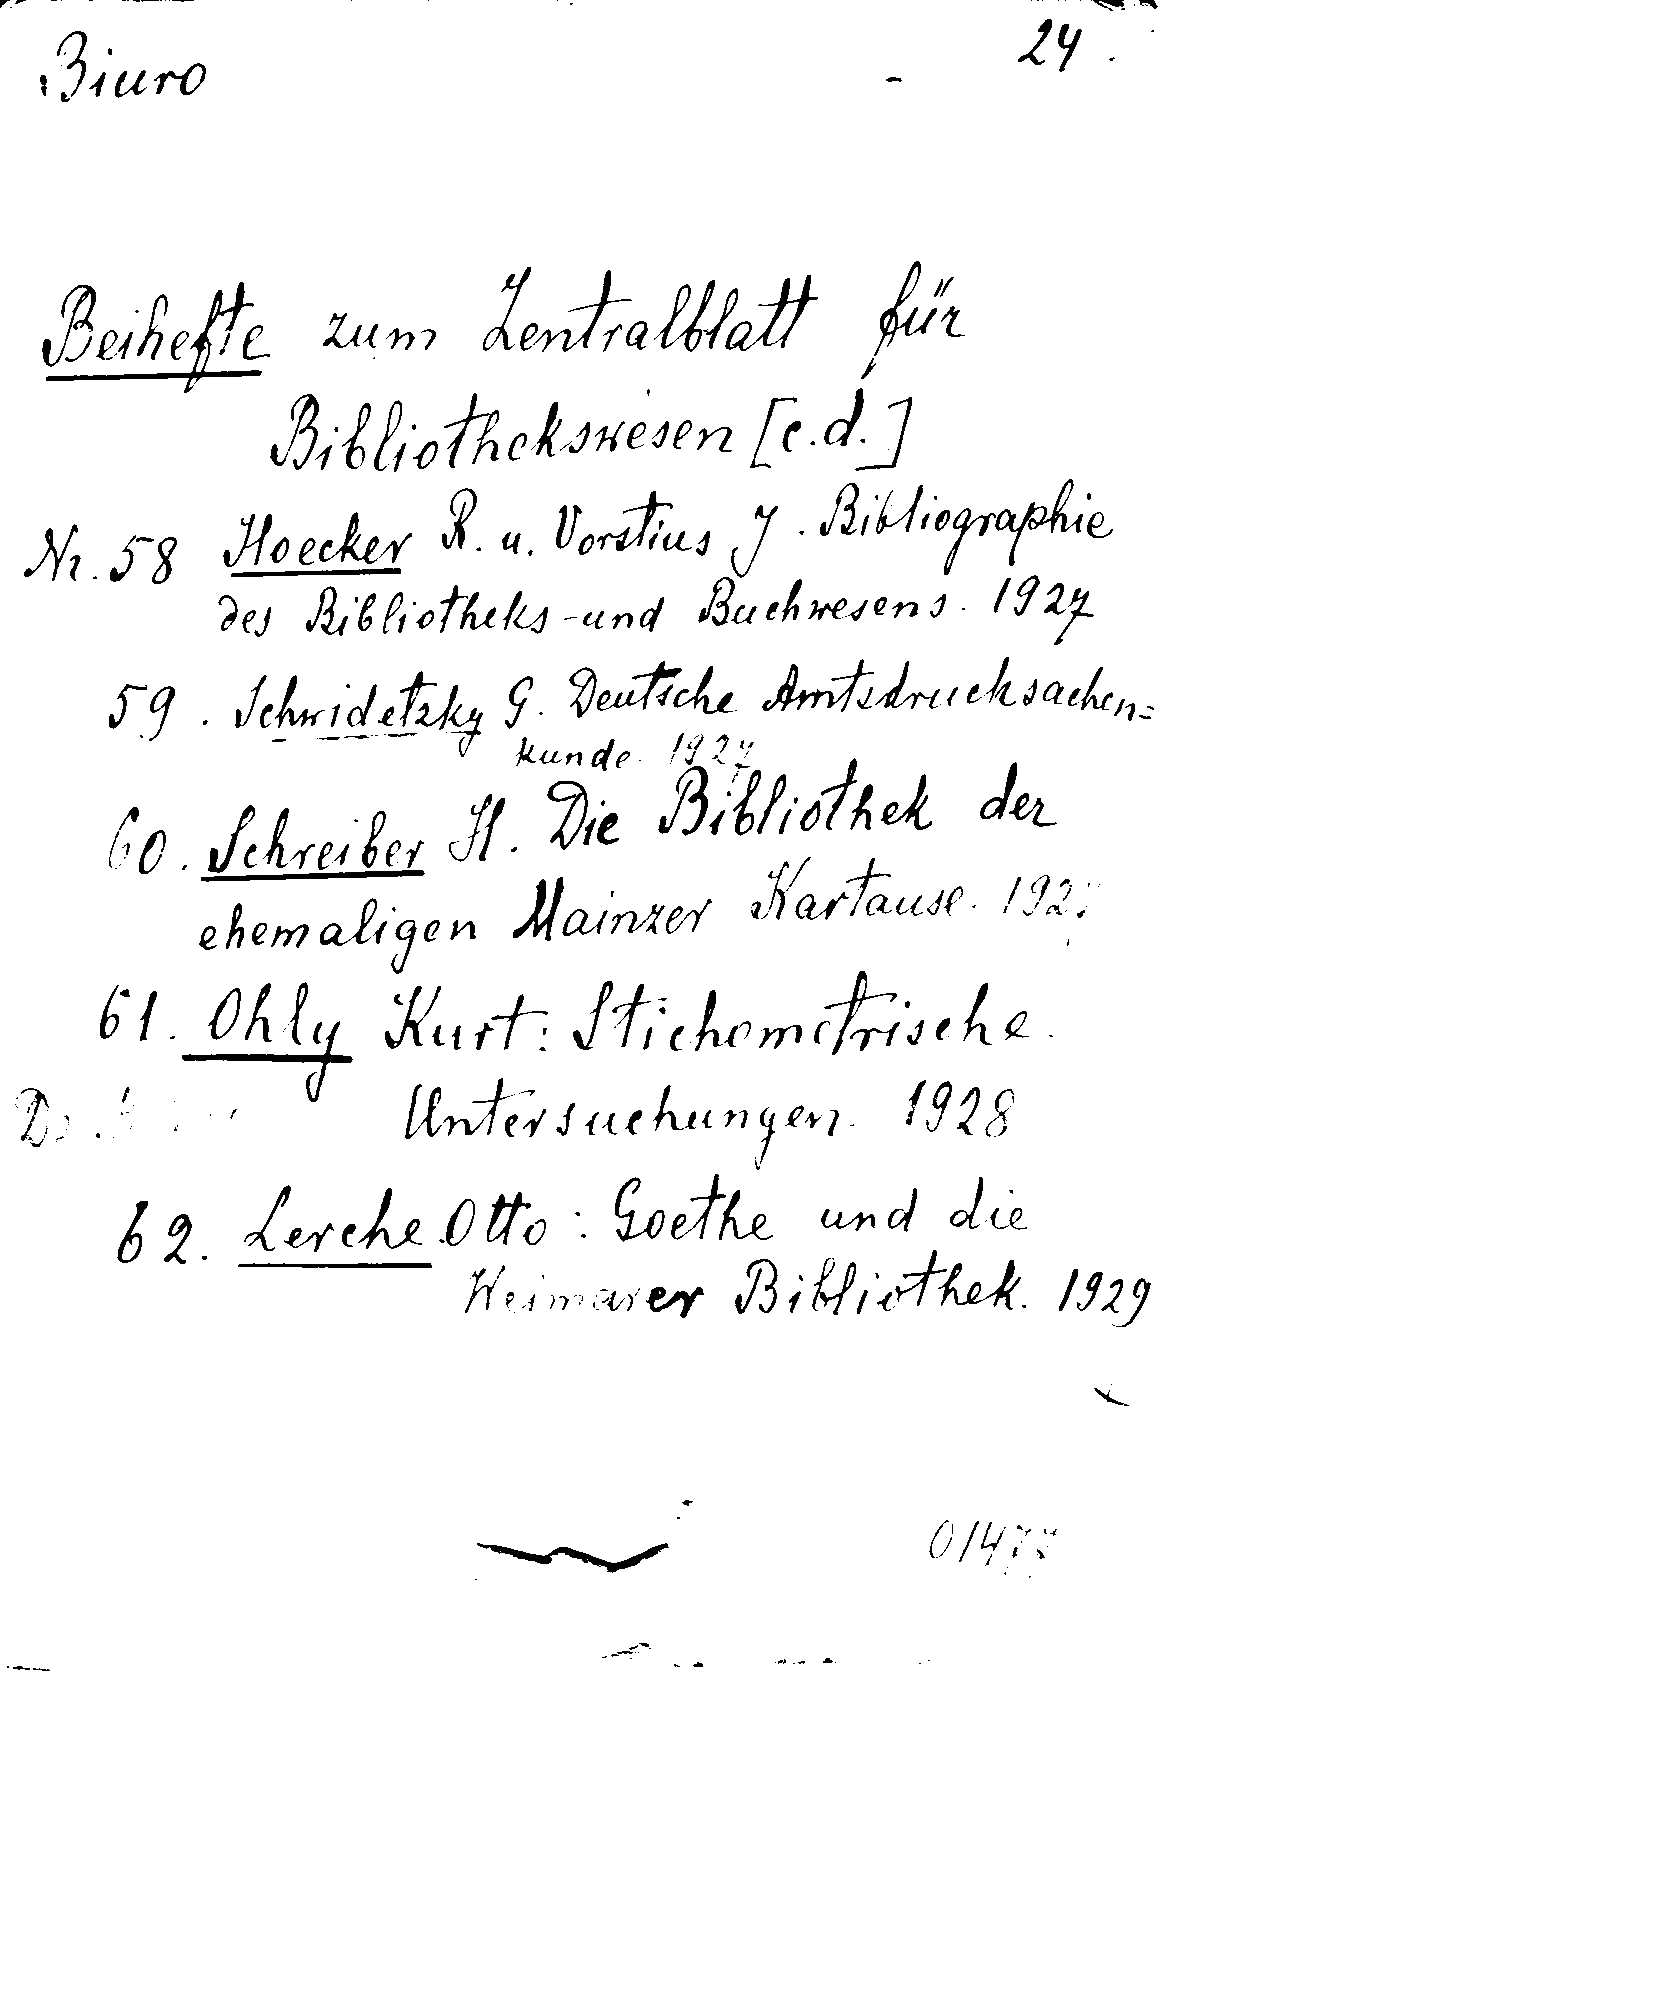 Biuro
24.
Beihefte zum Zentralblatt für
Bibliothekswesen [c.d.]
Nr. 58 Hoecker R. u. Vorstius J. Bibliographie
des Bibliotheks-und Buchwesens. 1927
59. Schwidetzky G. Deutsche Amtsdrucksachen=
kunde. 1927
60. Schreiber H. Die Bibliothek der
ehemaligen Mainzer Kartause.
61. Ohly Kurt: Stichometrische
Untersuchungen. 1928
62. Lerche Otto: Goethe und die
Weimarer Bibliothek. 1929